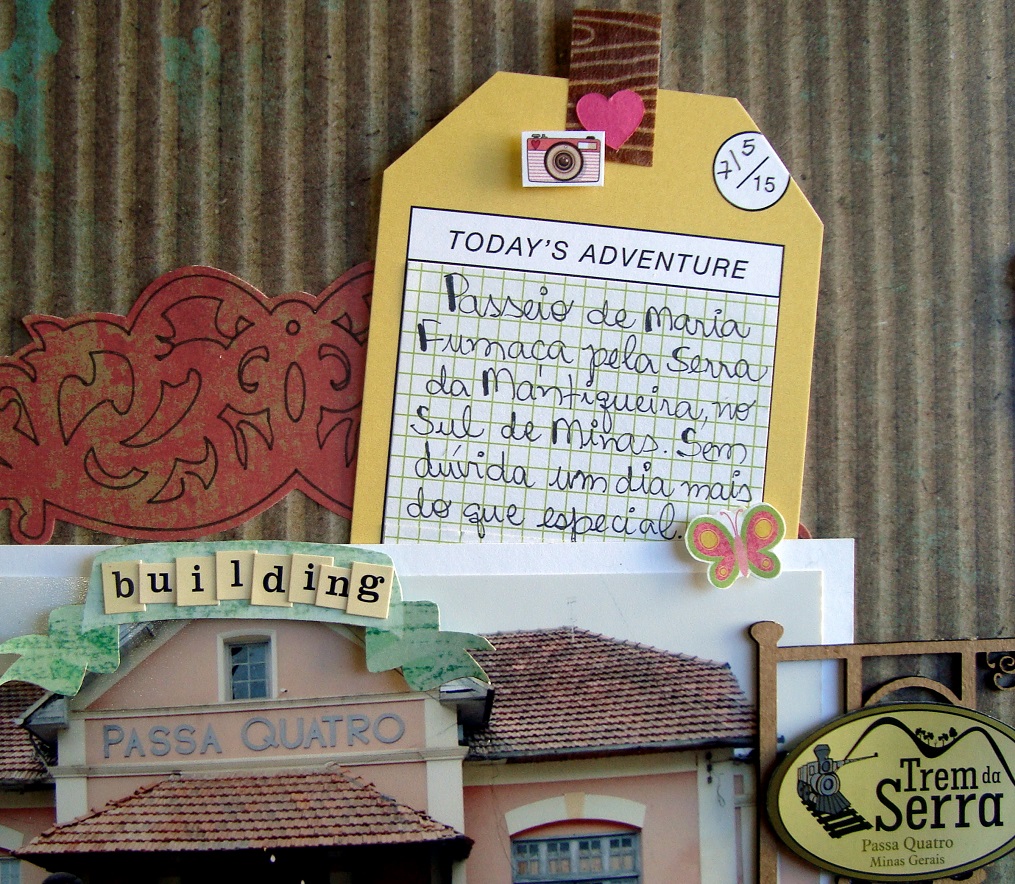 7/5/15
TODAY'S ADVENTURE
Passeio de Maria
Fumaça pela Serra
da Mantiqueira, no
Sul de Minas. Sem
dúvida um dia mais
do que especial.
building
PASSA QUATRO
Trem da
Serra
Passa Quatro
Minas Gerais